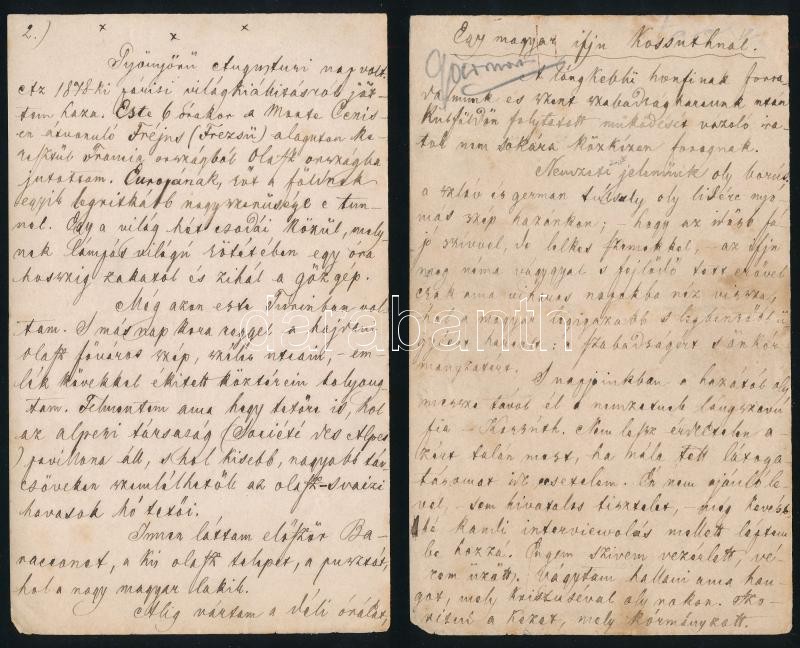 2.) x x x
Gyönyörű Augusztusi nap volt.
Az 1878-ki párisi világkiállitásról jöt-
tem haza. Este 6 órakor a Monte Cenis-
en átvonuló Fréjus (Frézsü) alaguton ke-
resztül Francziaországból Olaszországba
jutottam. Európának, sőt a földnek
egyik legritkább nagyszerűsége e tun-
nel. Egy a világ hét csodái közül, mely-
nek lámpás világú sötétében egy óra
hosszig zakatol és zihál a gőzgép.
Még azon este Turinban vol-
tam. S másnap kora reggel a hajdani
olasz főváros szép, széles utcáin, – em-
lék kövekkel ékitett közterein bolyong-
tam. Felmentem ama hegy tetőre is, hol
az alpesi társaság (Société des Alpes
) pavillona áll, s hol kisebb, nagyobb táv-
csöveken szemlélhetők az olasz-svaizi
havasok hó tetői.
Innen láttam először Ba-
racconet, a kis olasz telepet, a pusztát,
hol a nagy magyar lakik.
Alig vártam a déli órákat,
Egy magyar ifju Kossuthnál.
A lánglelkű honfinak forra-
dalmunk és szent szabadságharcunk után
külföldön folytatott működését vázoló ira-
tok nem sokára közkézen forognak.
Nemzeti jelenünk oly borús,
a szláv és german túlsuly oly lidérc nyo-
más szép hazánkon; – hogy az idősb fá-
jó szivvel, de lelkes szemekkel, – az ifju
meg néma vággyal s fejlődő tett erővel
csak ama viharos napokba néz vissza,
hol a magyar legigazabb s legbensőbb ü-
gyéért harcolt: a szabadságért s önkor-
mányzatért.
S napjainkban a hazától oly
messze távol él a nemzetnek lángszavú
fia – Kossuth. Nem lesz érdektelen a-
zért talán most, ha nála tett látoga-
tásomat itt ecsetelem. Én nem ajánló le-
vel, – sem hivatalos tisztelet, – még kevésb-
bé kandi interviewolás mellett léptem
be hozzá. Engem szivem vezérlett, vé-
rem űzött. Vágytam hallani ama han-
got, mely kristusével oly rokon. Szo-
ritni a kezet, mely kormányzott.
darabanth